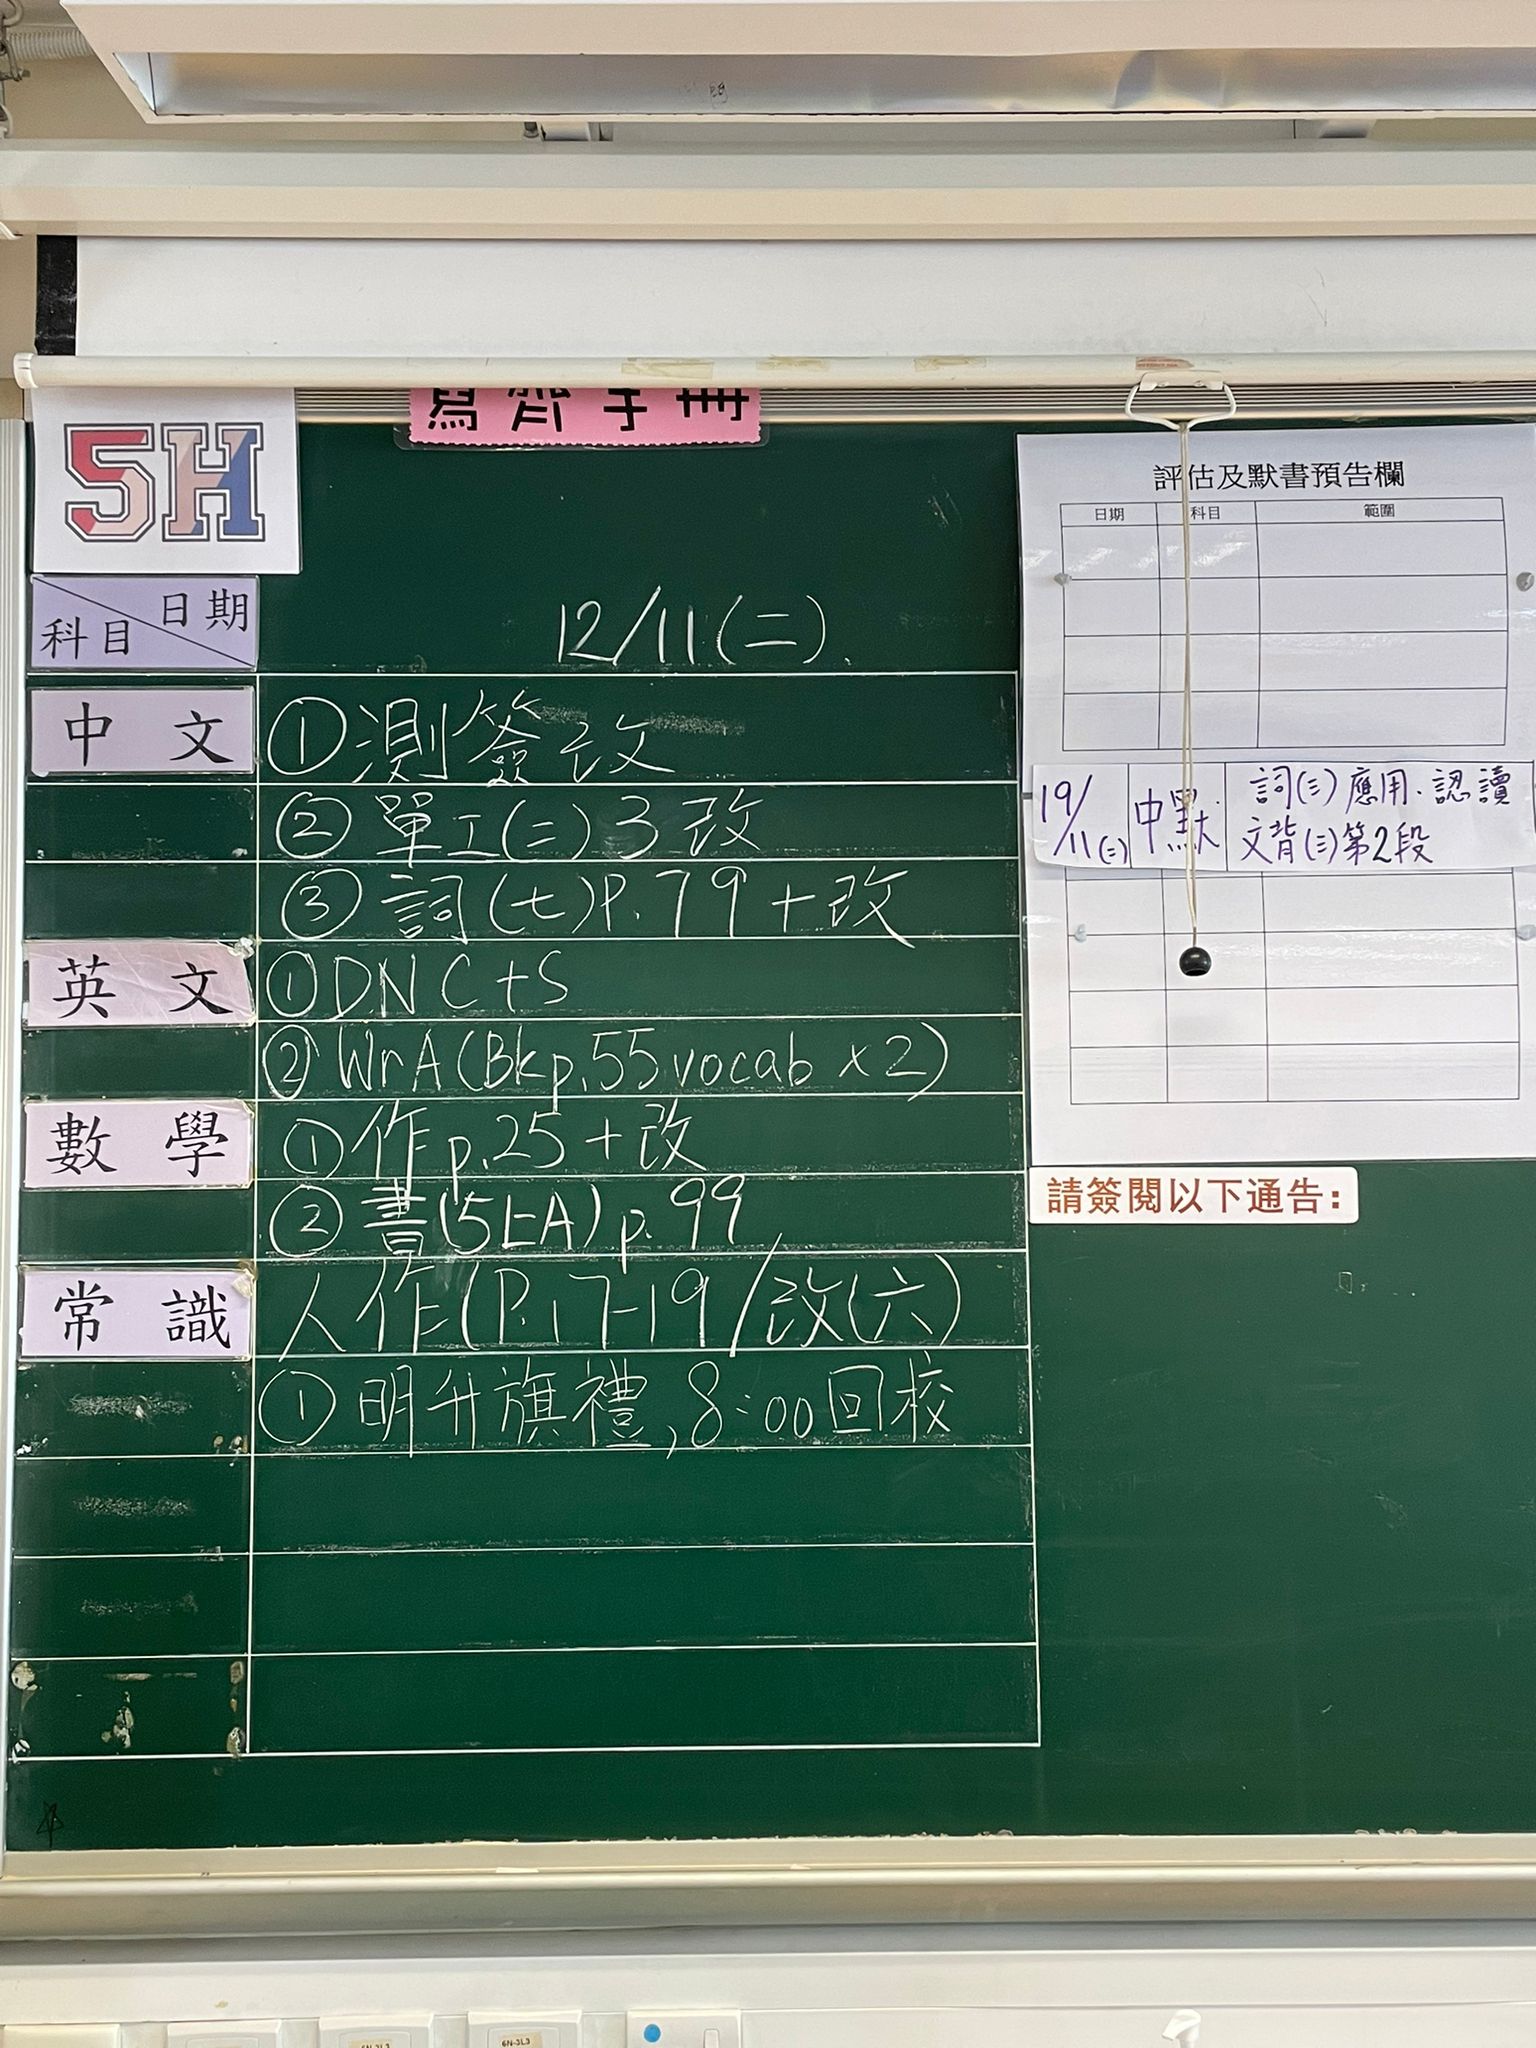 寫齊手冊
5H
日期
科目
12/11(二)
中文
①測簽改
②單工(二)3改
③詞(七)P.79+改
英文
①DN C+S
②WrA(Bkp.55 vocab x2)
數學
①作p.25+改
②書(5上A)p.99
常識
人作(P.17-19/改(六)
①明升旗禮,8:00回校
評估及默書預告欄
日期 科目 範圍
19/11(二) 中默 詞(三)應用.認讀
文背(三)第2段
請簽閱以下通告:
6N-3L3